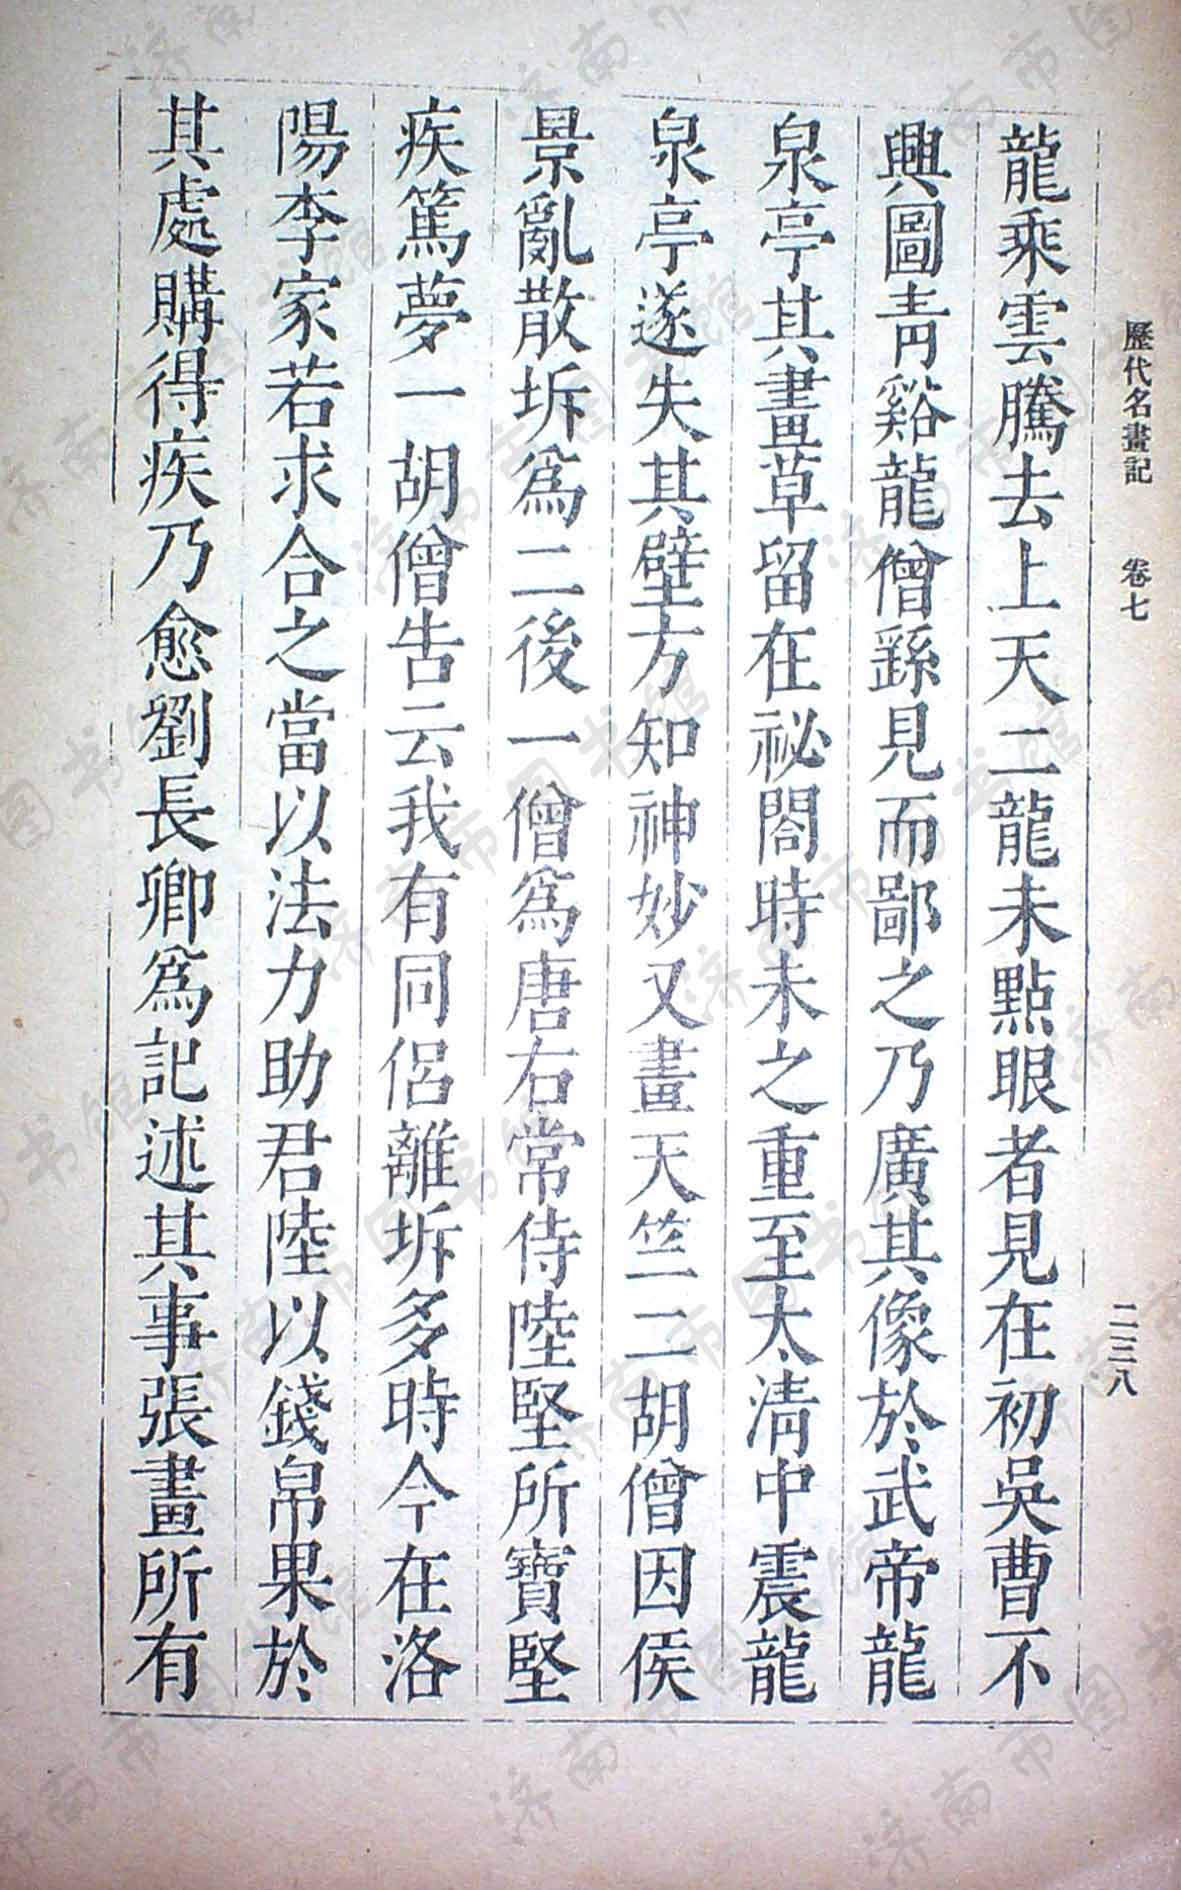 歷代名畫記 卷七 二三八
龍乘雲騰去上天二龍未點眼者見在初吳曹不
興圖靑谿龍僧繇見而鄙之乃廣其像於武帝龍
泉亭其畫草留在祕閣時未之重至太淸中震龍
泉亭遂失其壁方知神妙又畫天竺二胡僧因侯
景亂散坼爲二後一僧爲唐右常侍陸堅所寶堅
疾篤夢一胡僧告云我有同侶離坼多時今在洛
陽李家若求合之當以法力助君陸以錢帛果於
其處購得疾乃愈劉長卿爲記述其事張畫所有
济南市图书馆